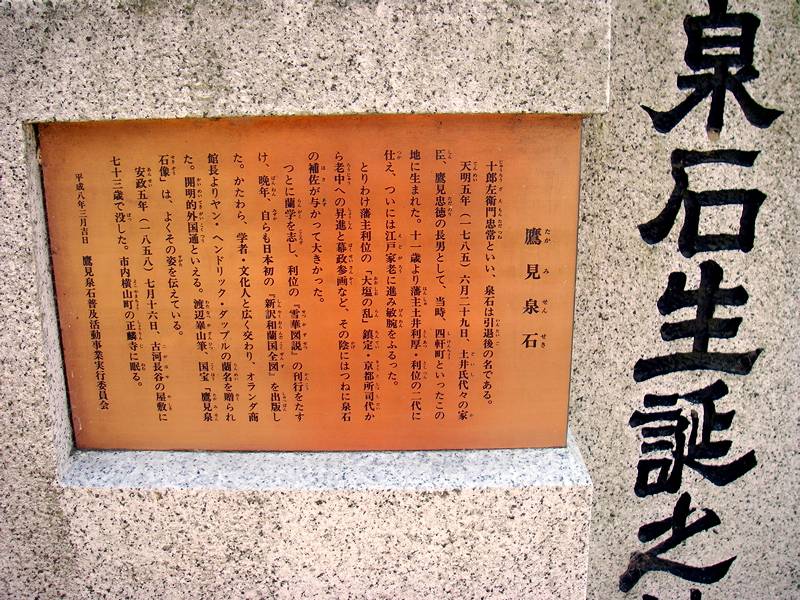 泉石生誕之
鷹見泉石
十郎左衛門忠常といい、泉石は引退後の名である。
天明五年（一七八五）六月二十九日、土井氏代々の家
臣、鷹見忠徳の長男として、当時、四軒町といったこの
地に生まれた。十一歳より藩主土井利厚・利位の二代に
仕え、ついには江戸家老に進み敏腕をふるった。
とりわけ藩主利位の「大塩の乱」鎮定・京都所司代か
ら老中への昇進と幕政参画など、その陰にはつねに泉石
の補佐が与かって大きかった。
つとに蘭学を志し、利位の『雪華図説』の刊行をたす
け、晩年、自らも日本初の『新訳和蘭国全図』を出版し
た。かたわら、学者・文化人と広く交わり、オランダ商
館長よりヤン・ヘンドリック・ダップルの蘭名を贈られ
た。開明的外国通といえる。渡辺崋山筆、国宝『鷹見泉
石像』は、よくその姿を伝えている。
安政五年（一八五八）七月十六日、古河長谷の屋敷に
七十三歳で没した。市内横山町の正麟寺に眠る。
平成八年三月吉日　鷹見泉石普及活動事業実行委員会